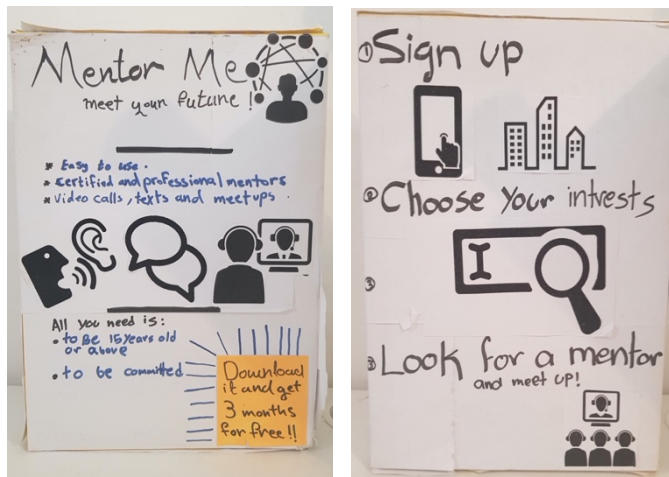 Mentor Me
meet your future !
* Easy to use .
* certified and professional mentors
* Video calls, texts and meetups .
All you need is:
• to Be 15 years old
or above
• to be committed
Download
it and get
3 months
for free !!
① Sign up
② Choose Your intrests
③
③ Look for a mentor
and meet up!